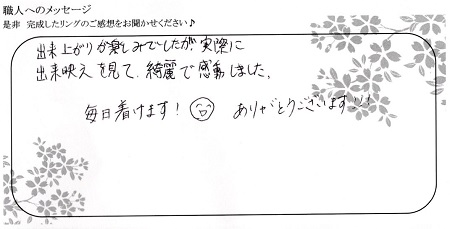 職人へのメッセージ
是非 完成したリングのご感想をお聞かせください♪
出来上がりが楽しみでしたが実際に
出来映えを見て、綺麗で感動しました。
毎日着けます! ありがとうございます!!!